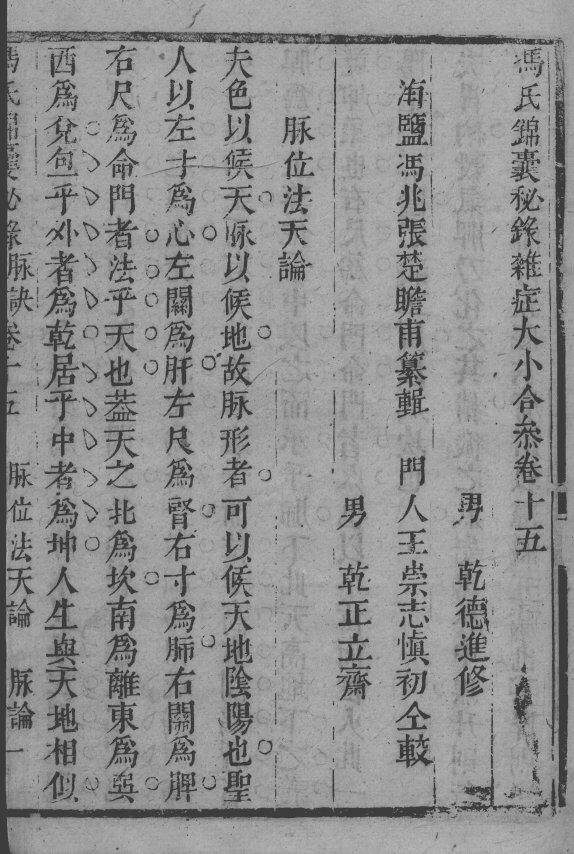 馮氏錦囊秘錄雜症大小合叅卷十五
男　乾德進修
海鹽馮兆張楚瞻甫纂輯　門人王崇志慎初仝較
男　乾正立齋
脉位法天論
夫色以候天脉以候地故脉形者可以候天地陰陽也聖
人以左寸為心左關為肝左尺為腎右寸為肺右關為脾
右尺為命門者法乎天也葢天之北為坎南為離東為巽
西為兌包乎外者為乾居乎中者為坤人生與天地相似
馮氏錦囊秘錄　脉訣卷十五　脉位法天論　脉論　一